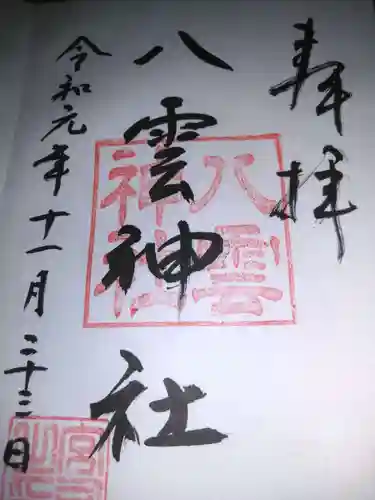 奉拝
八雲神社
八雲
神社
令和元年十一月二十三日